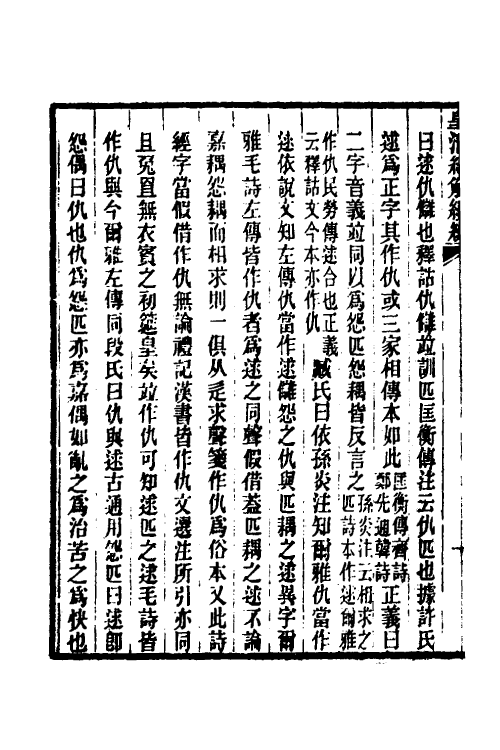 皇清經解續編
曰逑仇讎也釋詁仇讎竝訓匹匡衡傳注云仇匹也據許氏
逑爲正字其作仇或三家相傳本如此匡衡傳齊詩鄭先通韓詩正義曰
二字音義竝同以爲怨匹怨耦皆反言之孫炎注云相求之匹詩本作逑爾雅
作仇民勞傳逑合也正義云釋詁文今本亦作仇臧氏曰依孫炎注知爾雅仇當作
逑依說文知左傳仇當作逑讎怨之仇與匹耦之逑異字爾
雅毛詩左傳皆作仇者爲逑之同聲假借葢匹耦之逑不論
嘉耦怨耦而相求則一俱从辵求聲箋作仇爲俗本又此詩
經字當假借作仇無論禮記漢書皆作仇文選注所引亦同
且兔罝無衣賓之初筵皇矣竝作仇可知逑匹之逑毛詩皆
作仇與今爾雅左傳同段氏曰仇與逑古通用怨匹曰逑卽
怨偶曰仇也仇爲怨匹亦爲嘉偶如亂之爲治苦之爲快也